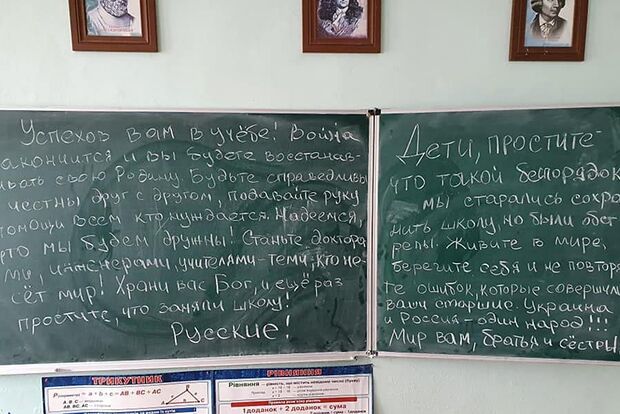 Успехов вам в учёбе! Война
акончится и вы будете восстанав-
ивать свою Родину. Будьте справедливы
честны друг с другом, подавайте руку
помощи всем кто нуждается. Надеемся,
что мы будем дружны! Станьте доктора-
ми, инженерами, учителями - теми, кто не-
сёт мир! Храни вас Бог, и ещё раз
простите, что заняли школу!
Русские!
Дети, простите
что такой беспорядок
мы старались сохра-
нить школу, но были обст-
релы. Живите в мире,
берегите себя и не повторя-
те ошибок, которые совершили
ваши старшие. Украина
и Россия - один народ!!!
Мир вам, братья и сёстры!
ТРИКУТНИК
P = a + b + c = AB + BC + AC
РІВНЯННЯ
Рівняння – рівність, що містить невідоме число (букву)
1 доданок + 2 доданок = сума